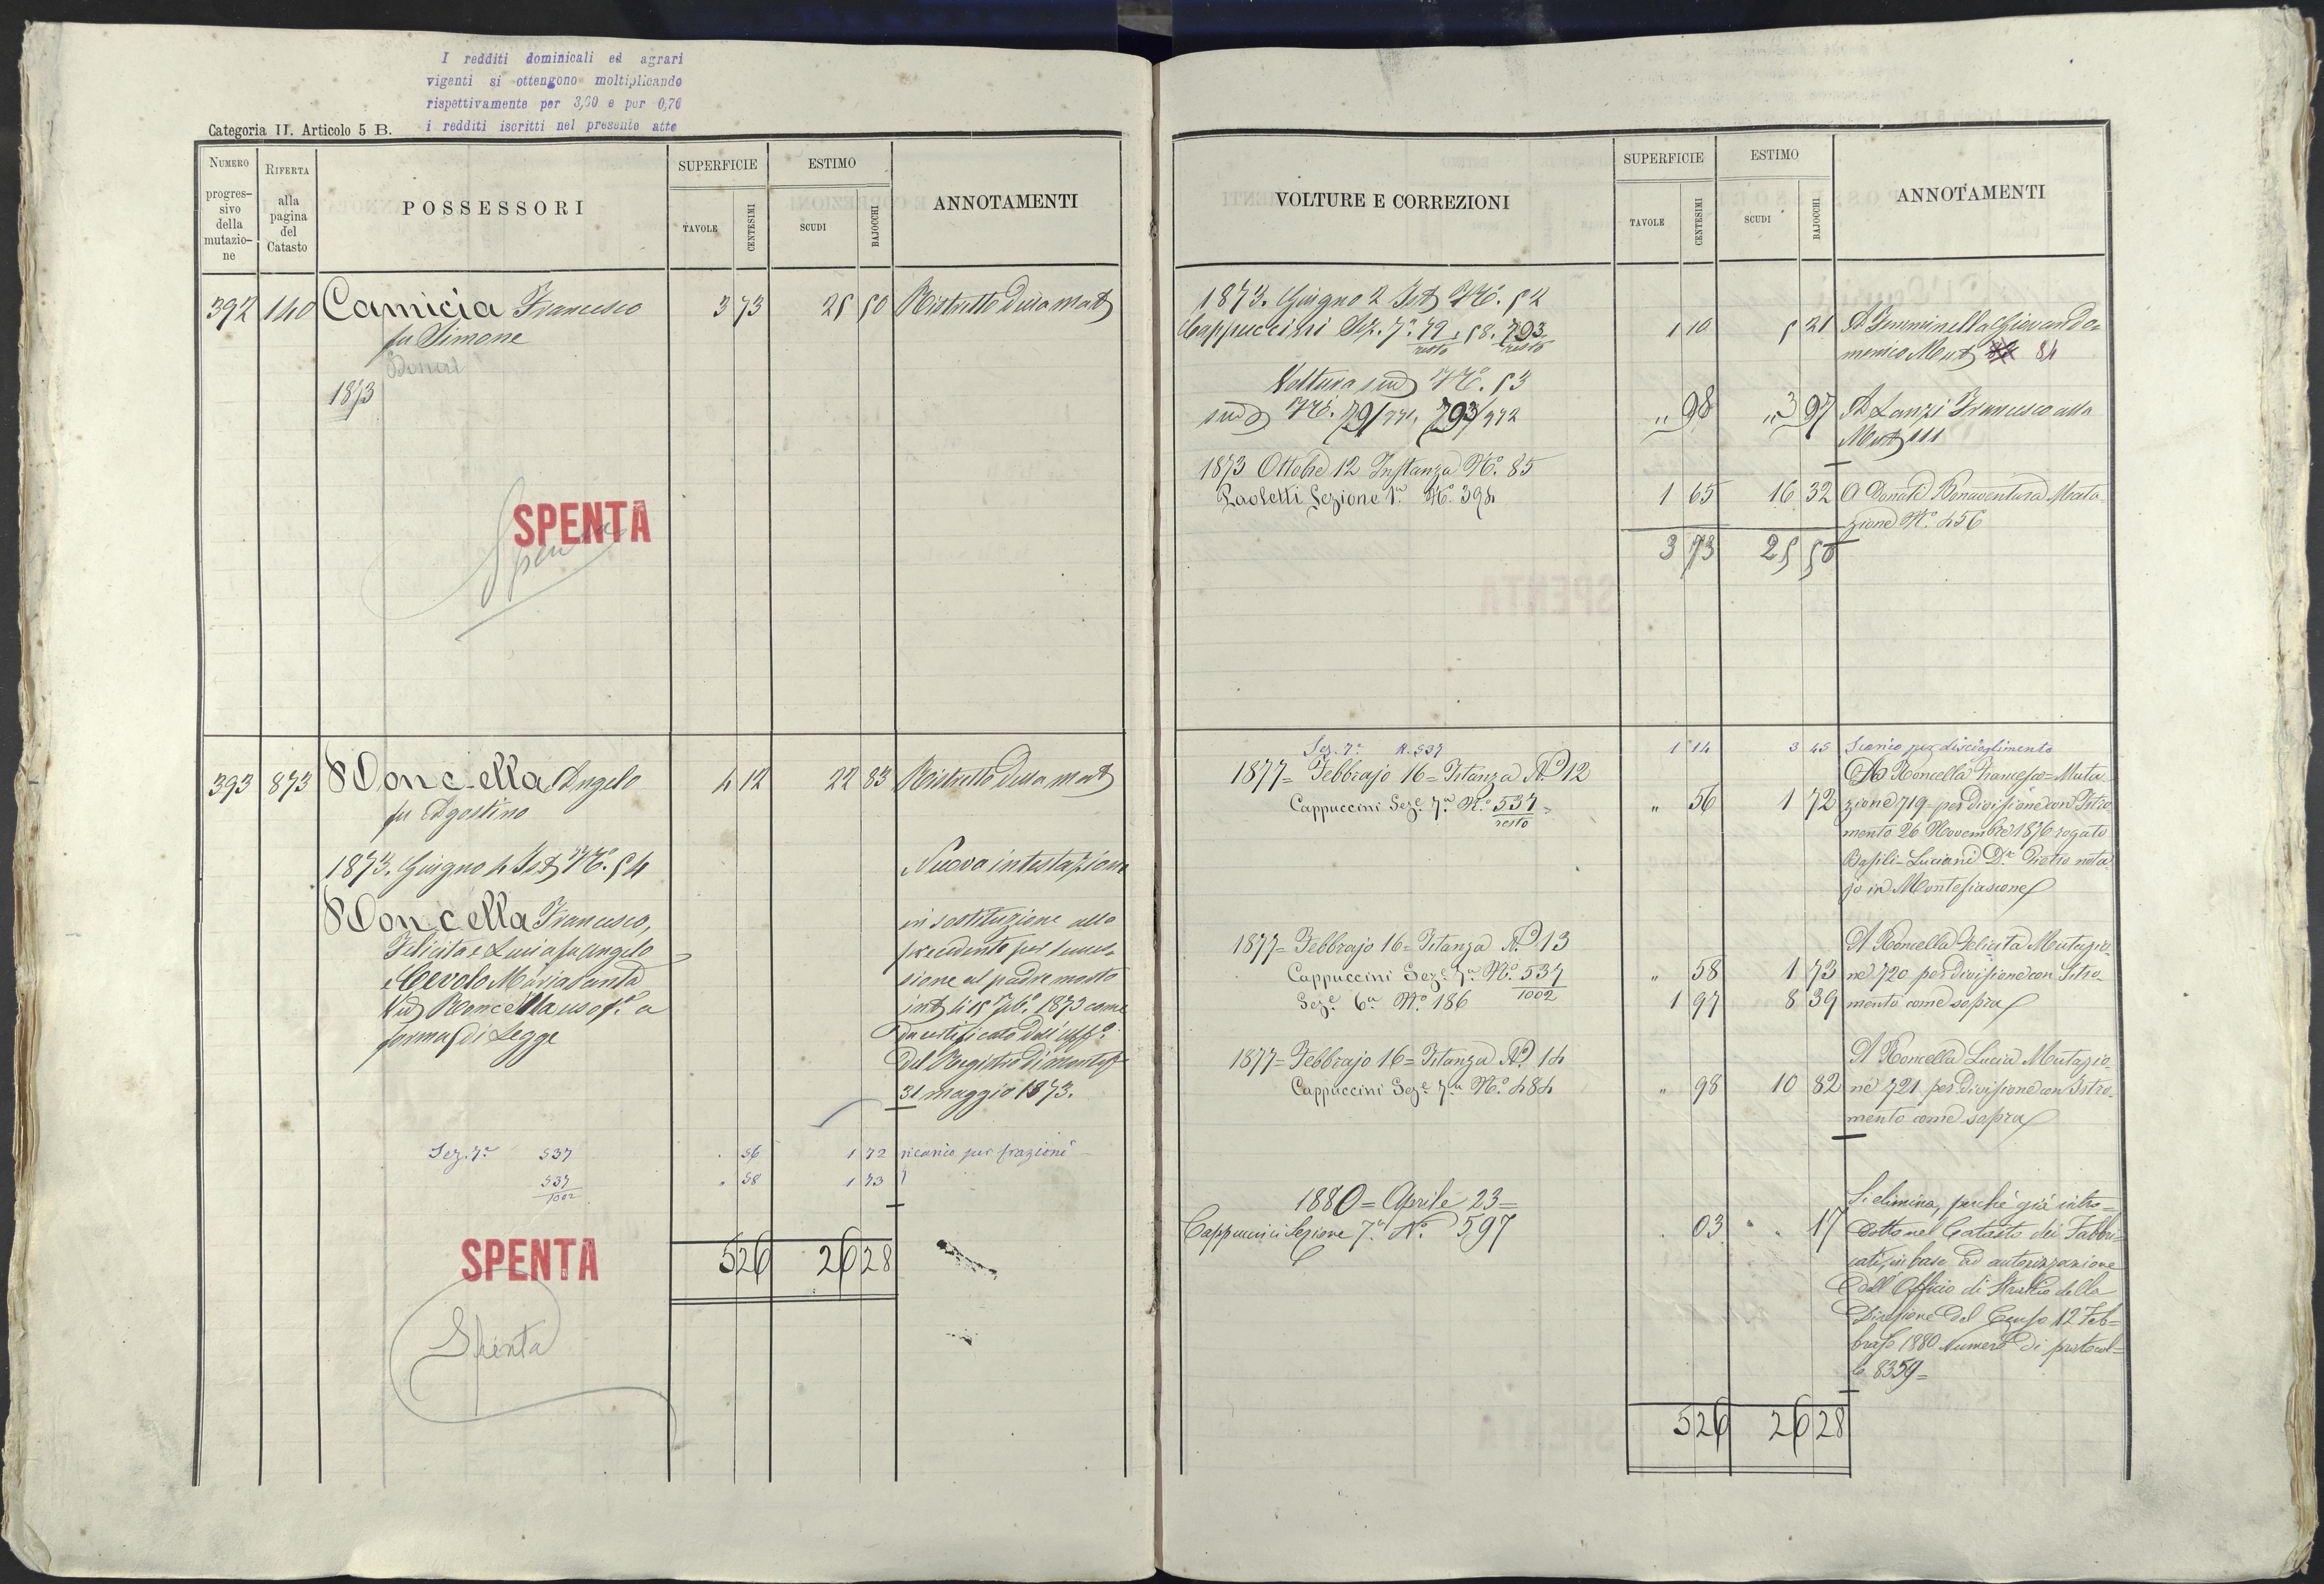 I redditi dominicali ed agrari
vigenti si ottengono moltiplicando
rispettivamente per 3,00 e per 0,76
i redditi iscritti nel presente atto
Categoria II. Articolo 5 B.
NUMERO
progres-
sivo
della
mutazio-
ne
RIFERTA
alla
pagina
del
Catasto
POSSESSORI
SUPERFICIE
TAVOLE
CENTESIMI
ESTIMO
SCUDI
BAJOCCHI
ANNOTAMENTI
392 140 Camicia Francesco 3 73 25 50 Ristretto della mat
fu Simone
1873
SPENTA
Spenta
393 873 Roncella Angelo 4 12 22 83 Ristretto della mat
fu Agostino
1873. Giugno 4 Ist No. 54 Nuova intestazione
Roncella Francesco, in sostituzione alla
Felicita e Lucia fu Angelo precedente per succes-
e Cevolo Maria Santa sione al padre morto
Ved Roncella usuf.a a
forma di Legge
da certificato dell'uff.o
del Registro di Montef
31 maggio 1873.
Sez. 7a 537 . 56 1 72 ricarico per frazione
537/1002 " 58 1 73
SPENTA
5 26 26 28
Spenta
VOLTURE E CORREZIONI
SUPERFICIE
TAVOLE
CENTESIMI
ESTIMO
SCUDI
BAJOCCHI
ANNOTAMENTI
1873. Giugno 2 Ist No. 52
Cappuccini Sez. 7a 79 resto, 58. 793 resto 1 10 5 21 A Femminella Giovan Do-
menico Mut 84
Voltura sud No. 53
sud No. 79/771, 793/772 " 98 " 3 97 A Lanzi Francesco alla
Mut 111
1873 Ottobre 12 Instanza No. 85
Paoletti Sezione 1a No. 398 1 65 16 32 A Donati Bonaventura Muta-
zione No. 456
3 73 25 50
Sez. 7a N. 537 1 14 3 45 Scarico per discioglimento
1877= Febbrajo 16= Istanza No. 12 A Roncella Francesco= Muta-
Cappuccini Seze. 7a No. 537 resto = " 56 1 72 zione 719= per divisione con Istro
mento 26 Novembre 1876 rogato
Basili-Luciani Dr. Pietro nota
jo in Montefiascone
1877= Febbrajo 16= Istanza No. 13 A Roncella Felicita Mutazio-
Cappuccini Seze. 7a No. 537/1002 " 58 1 73 ne 720 per divisione con Istro-
Seze. 6a No. 186 1 97 8 39 mento come sopra
1877= Febbrajo 16= Istanza No. 14 A Roncella Lucia Mutazio-
Cappuccini Seze. 7a No. 484 " 98 10 82 ne 721 per divisione con Istro-
mento come sopra
1880= Aprile 23= Si elimina, perché già intro=
Cappuccini Sezione 7a No. 597 . 03 . 17 dotto nel Catasto dei Fabbri=
cati, in base ad autorizzazione
dell'Officio di Stralcio della
Direzione del Censo 12 Feb=
brajo 1880 Numero di protocol=
lo 8359=
5 26 26 28